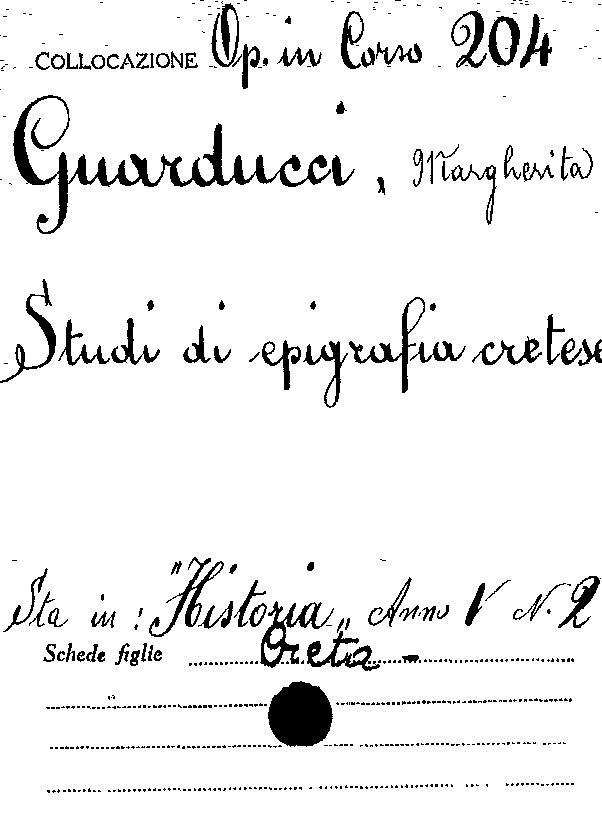 COLLOCAZIONE Op. in Corso 204
Guarducci, Margherita
Studi di epigrafia cretese
Sta in: "Historia„ Anno V N. 2
Schede figlie Creta -